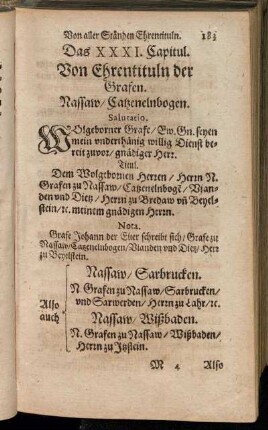 Von aller Ständen Ehrentituln. 183
Das XXXI. Capitul.
Von Ehrentituln der
Grafen.
Nassaw/Catzenelnbogen.
Salutatio.
WOlgeborner Grafe/Ew. Gn. seyen
mein vnderthänig willig Dienst be-
reit zuvor/gnädiger Herr.
Titul.
Dem Wolgebornen Herren/Herrn N.
Grafen zu Nassaw/Catzenelnbogē/Vian-
den vnd Dietz/Herrn zu Bredaw vñ Beyel-
stein/ꝛc. meinem gnädigen Herrn.
Nota.
Grafe Johann der Elter schreibt sich: Grafe zu
Nassaw/Catzenelnbogen/Vianden vnd Dietz/Herr
zu Beyelstein.
Nassaw/Sarbrucken.
N. Grafen zu Nassaw/Sarbrucken/
vnd Sarwerden/Herrn zu Lahr/ꝛc.
Also
auch
Nassaw/Wißbaden.
N. Grafen zu Nassaw/Wißbaden/
Herrn zu Itzstein.
M 4 Also